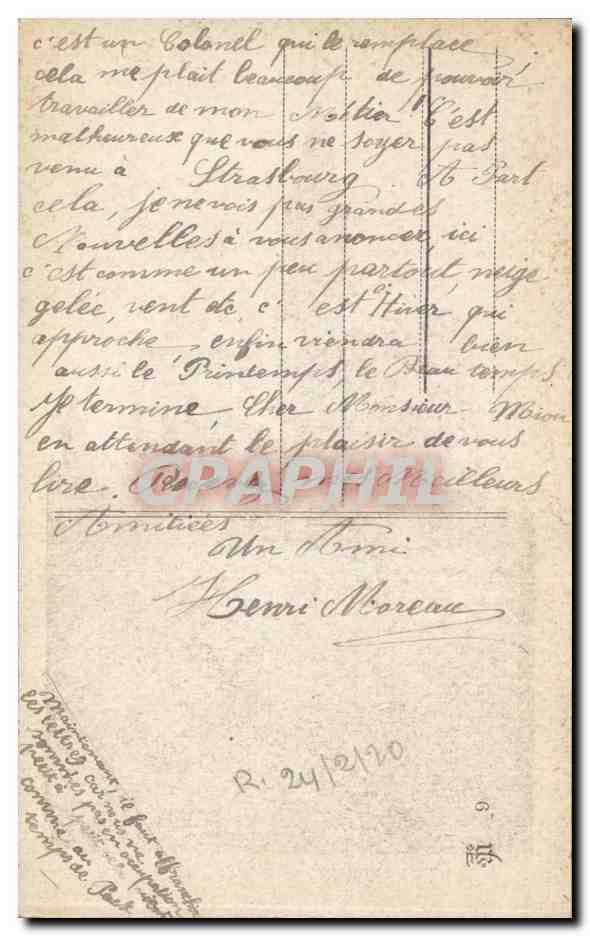 c'est un Colonel qui le remplace
cela me plait beaucoup de pouvoir
travailler de mon Métier C'est
malheureux que vous ne soyer pas
venu à Strasbourg A Part
cela, je ne vois pas grandes
Nouvelles à vous anoncer, ici
c'est comme un peu partout, neige
gelée, vent etc, c'est l'Hiver qui
approche, enfin viendra bien
aussi le Printemps, le Beau temps
Je termine, Cher Monsieur Miou
en attendant le plaisir de vous
lire. Recevez mes Meilleurs
Amitiées
Un Ami
Henri Moreau
Maintenant, il faut affranchir
les lettres car nous ne
sommes pas en occupation
petit à petit
comme au
temps de Paix
R. 24/2/20
9
CPAPHIL